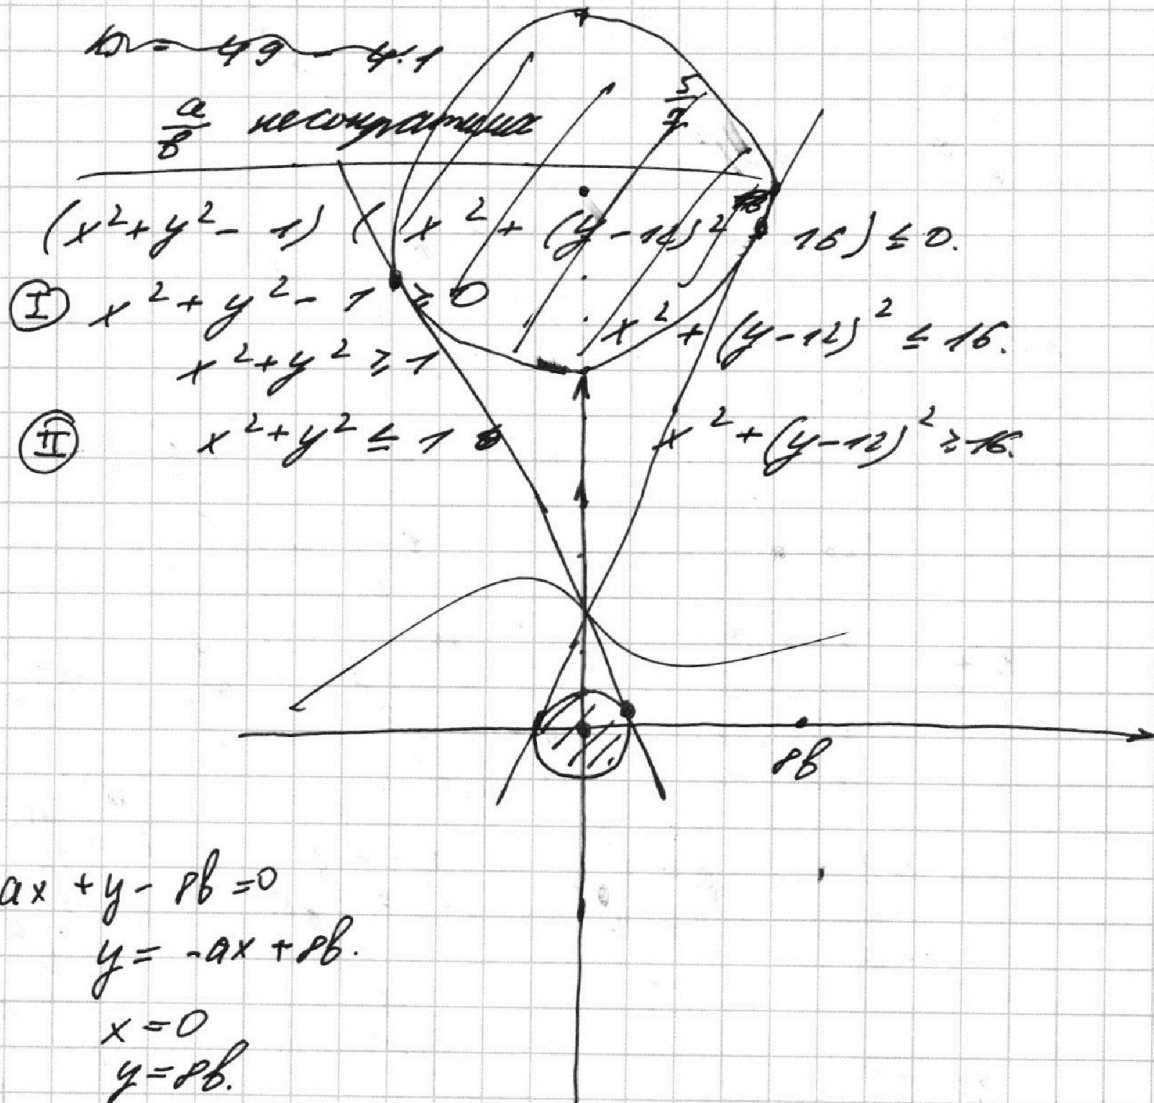 D = 49 - 4·1
a/b несократима
5/7
(x² + y² - 1) (x² + (y-12)² 16) ≤ 0.
Ⓘ x² + y² - 1 ≥ 0
x² + (y-12)² ≤ 16.
x² + y² ≥ 1
Ⓘⓘ x² + y² ≤ 1
x² + (y-12)² ≥ 16.
8b
ax + y - 8b = 0
y = -ax + 8b.
x = 0
y = 8b.